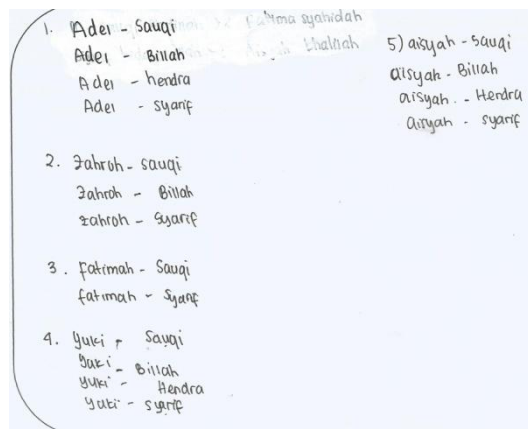 1. Adel - Sauqi
Adel - Billah
Adel - hendra
Adel - syarif
2. Zahroh - sauqi
Zahroh - Billah
zahroh - Syarif
3. Fatimah - Sauqi
fatimah - Syarif
4. Yuki - Sauqi
Yuki - Billah
Yuki - Hendra
Yuki - syarif
5) aisyah - sauqi
aisyah - Billah
aisyah - Hendra
aisyah - syarif
Fatima syahidah